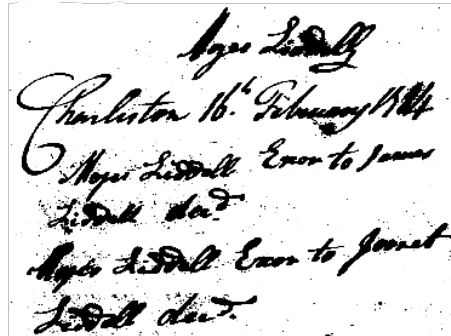 Moses Liddell
Charleston 16.th February 18
Moses Liddell Exor to James
Liddell decd.
Moses Liddell Exor to Jannet
Liddell decd.